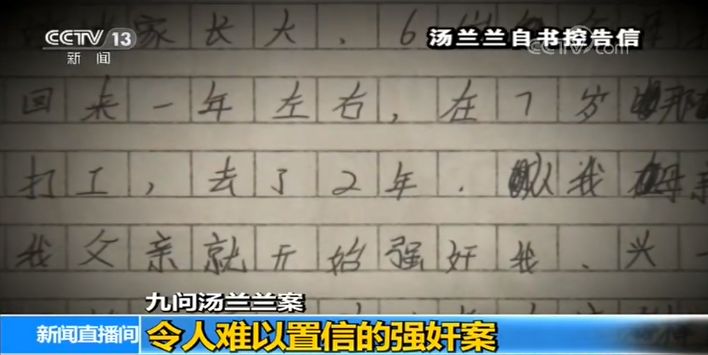 CCTV 13
新闻
汤兰兰自书控告信
CCTV.com
家长大、6岁
回来一年左右，在7岁 那
打工，去了2年. 以我 母亲
我父亲就开始强奸我、兴一
九问汤兰兰案
新闻直播间
令人难以置信的强奸案